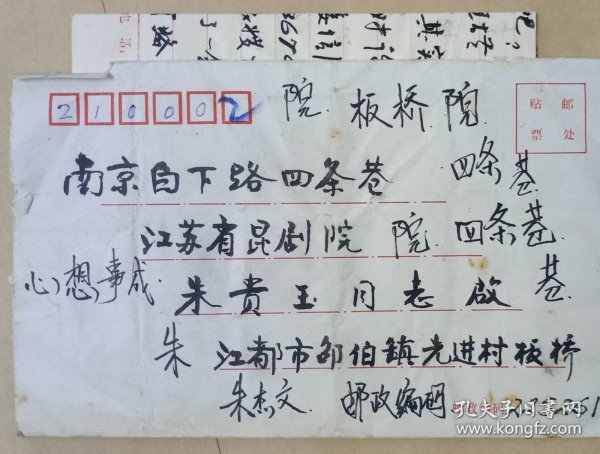 210002
院 板桥院
贴 邮
票 处
南京白下路四条巷 四条巷
江苏省昆剧院 院 四条巷
心想事成 朱贵玉同志啟 巷
朱 江都市邵伯镇光进村板桥
朱杰文 邮政编码
孔夫子旧书网
www.kongfz.com